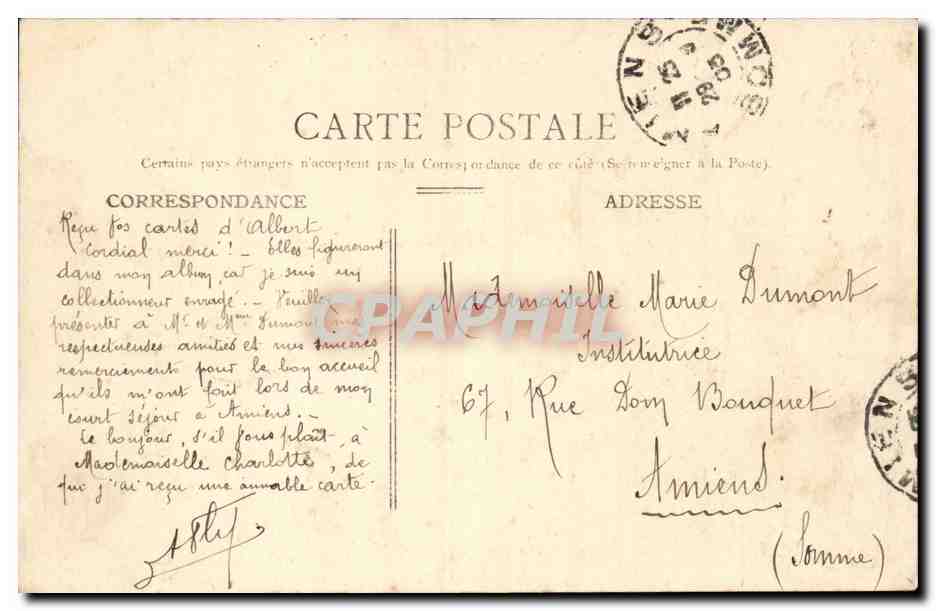 CARTE POSTALE
Certains pays étrangers n'acceptent pas la Correspondance de ce côté (Se renseigner à la Poste).
CORRESPONDANCE
Reçu vos cartes d'Albert
Cordial merci! - Elles figureront
dans mon album car je suis un
collectionneur enragé. - Veuillez
présenter à Mr. et Mme Dumont mes
respectueuses amitiés et mes sincères
remerciements pour le bon accueil
qu'ils m'ont fait lors de mon
court séjour à Amiens. -
Le bonjour, s'il vous plaît, à
Mademoiselle Charlotte, de
qui j'ai reçu une aimable carte.
ADRESSE
Mademoiselle Marie Dumont
Institutrice
67, Rue Dom Bouquet
Amiens.
(Somme)
CPAPHIL
AMIENS SOMME
11 25
29
05
MIENS